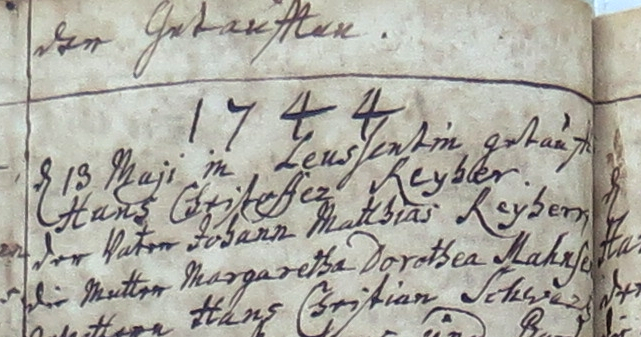 der Getaufften.
1744
d 13 Maji in Leussentin getaufft
Hans Christoffer Reyher.
der Vater Johann Matthias Reyherr
die Mutter Margaretha Dorothea Mahns
Hans Christian Schwarz